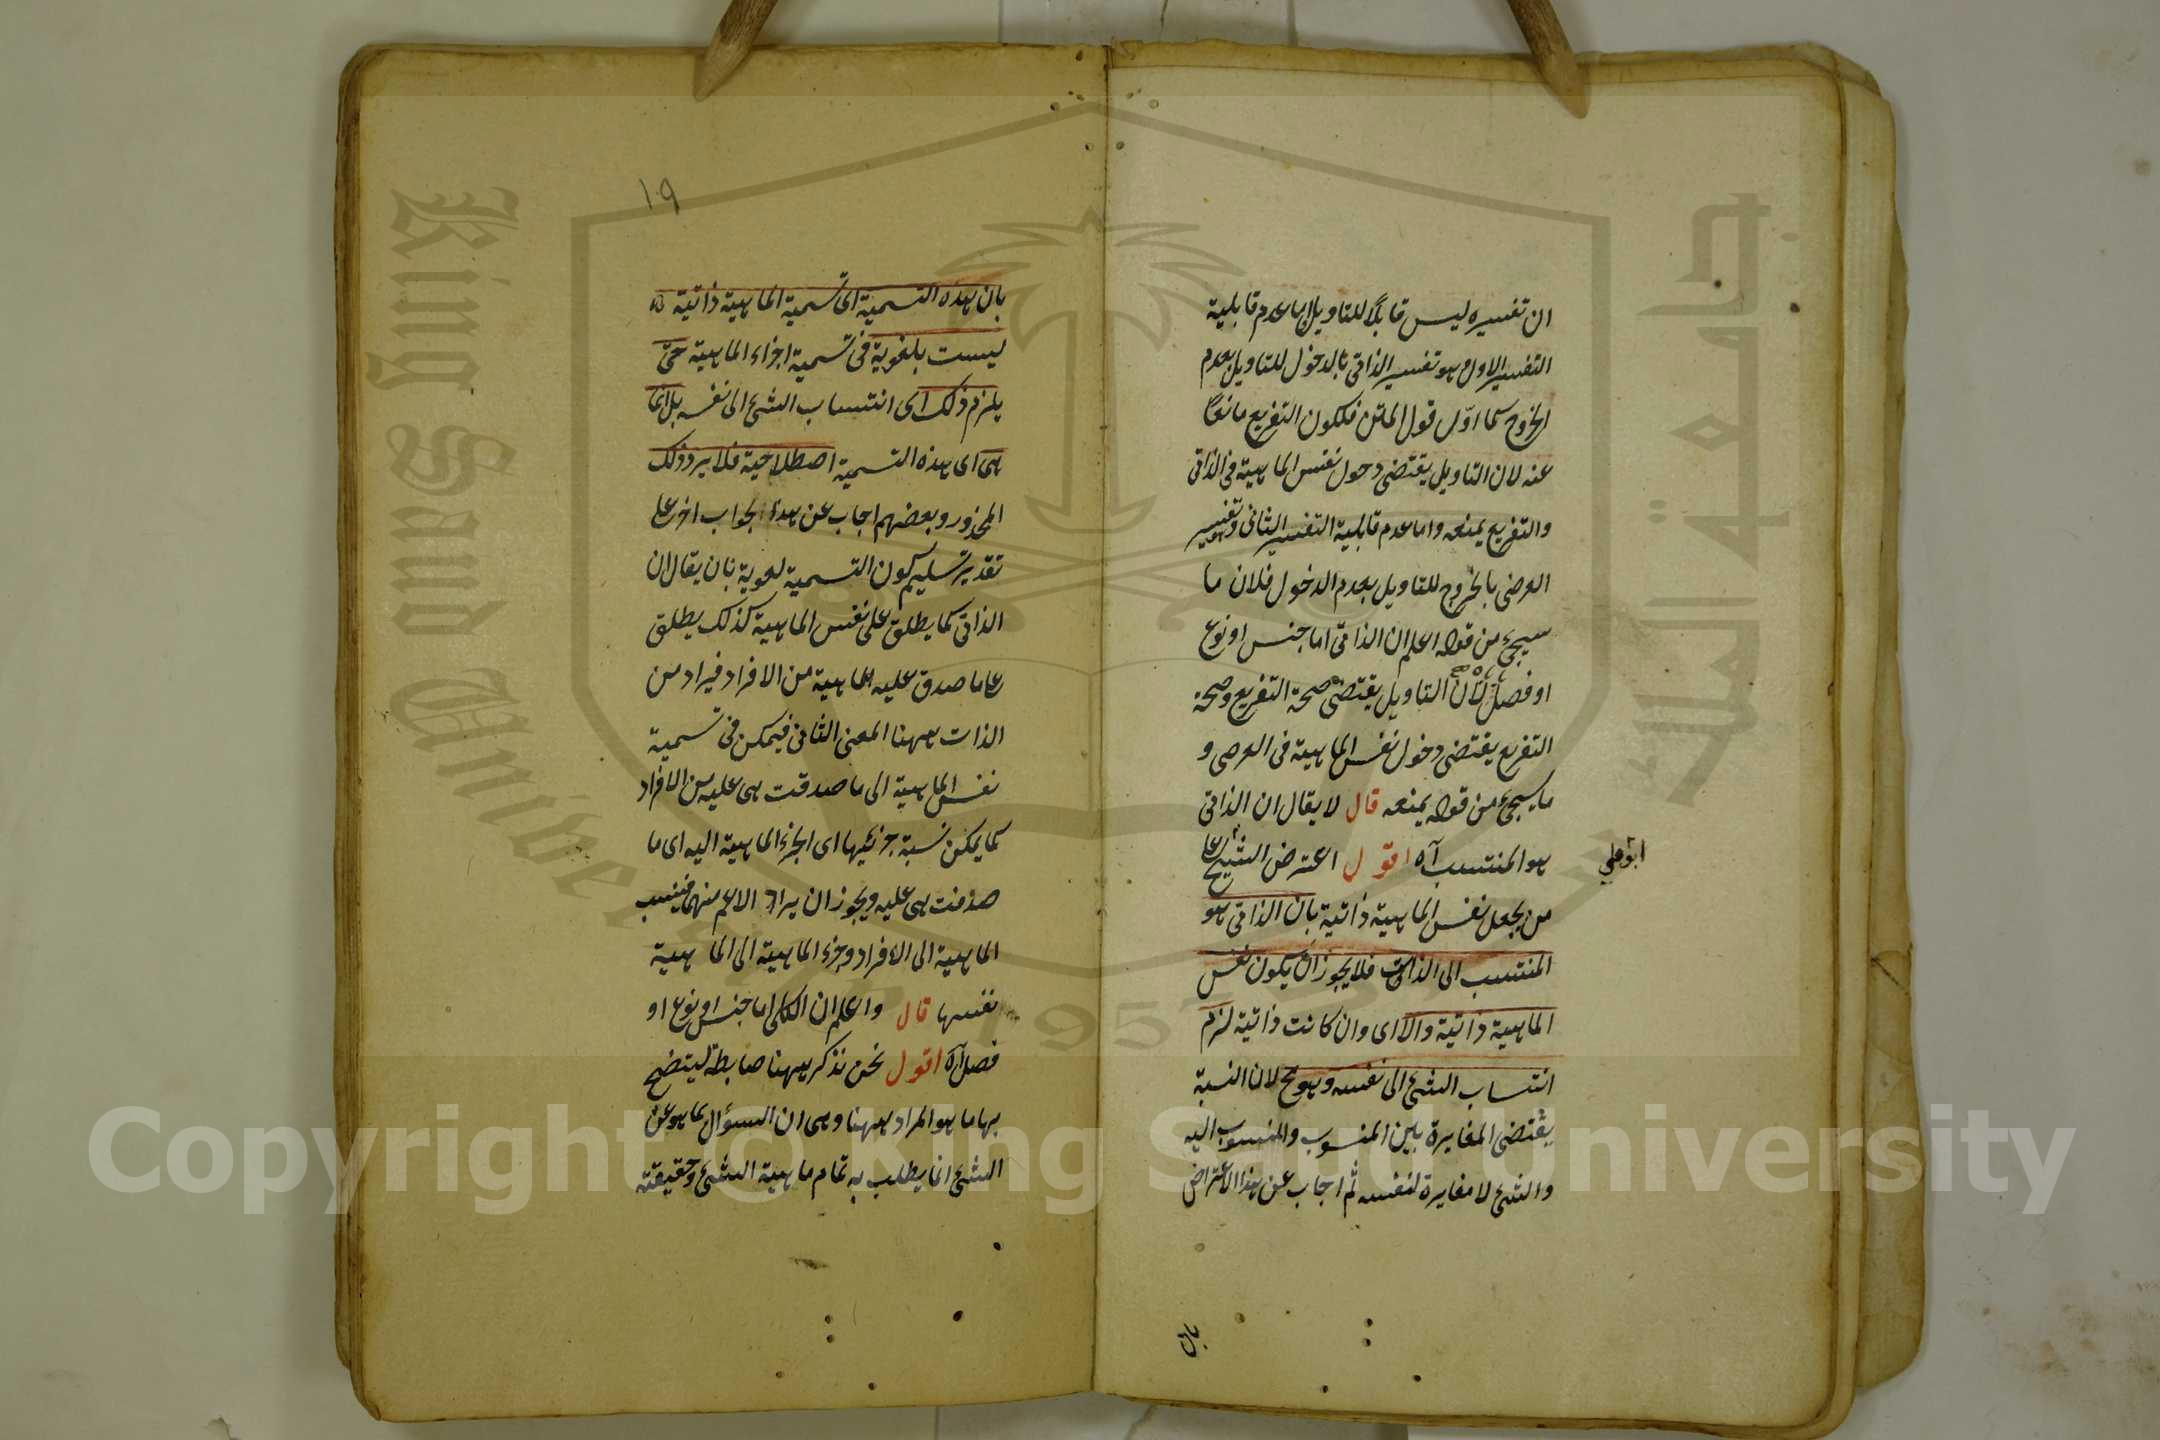 ان تفسيره ليس قابلًا للتاويل اما عدم قابلية
التفسير الاول وهو تفسير الذاتي بالدخول للتاويل بعدم
الخروج كما اوّل قول الماتن فلكون التفريع مانعًا
عنه لان التاويل يقتضى دخول نفس الماهية فى الذاتى
والتفريع يمنعه واما عدم قابلية التفسير الثانى وهو تفسير
العرضى بالخروج للتاويل بعدم الدخول فلان ما
سيجئ من قوله اعلم ان الذاتى اما جنس او نوع
او فصل لان التاويل يقتضى صحة التفريع وصحة
التفريع يقتضى دخول نفس الماهية فى العرضى و
ما سيجئ من قوله يمنعه قال لا يقال ان الذاتى
هو المنتسب آه اقول اعترض الشيخ على
ابو على
من يجعل نفس الماهية ذاتية بان الذاتى هو
المنتسب الى الذات فلا يجوز ان يكون نفس
الماهية ذاتية والا اى وان كانت ذاتية لزم
انتساب الشئ الى نفسه وهو مح لان النسبة
يقتضى المغايرة بين المنسوب والمنسوب اليه
والشئ لا مغايرة لنفسه ثم اجاب عن هذا الاعتراض
بان
١٩
بان هذه التسمية اى تسمية الماهية ذاتية
ليست بلغوية فى تسمية اجزاء الماهية حتّى
يلزم ذلك اى انتساب الشئ الى نفسه بل انما
هى اى هذه التسمية اصطلاحية فلا يرد ذلك
المحذور وبعضهم اجاب عن هذا بجواب اخر على
تقدير تسليم كون التسمية لغوية بان يقال ان
الذاتى كما يطلق على نفس الماهية كذلك يطلق
على ما صدق عليه الماهية من الافراد فيراد من
الذات ههنا المعنى الثانى فيمكن فى تسمية
نفس الماهية الى ما صدقت هى عليه من الافراد
كما يمكن نسبة جزئيها اى الجزء الماهية اليه اى ما
صدقت هى عليه ويجوز ان يراد الاعم منهما فينسب
الماهية الى الافراد وجزء الماهية الى الماهية
نفسها قال واعلم ان الكلى اما جنس او نوع او
فصل آه اقول نحن نذكر ههنا ضابطة ليتضح
بها ما هو المراد ههنا وهى ان السؤال بما هو عن
الشئ انما يطلب به تمام ماهية الشئ وحقيقته
King Saud University
جامعة الملك سعود
1957
Copyright © King Saud University